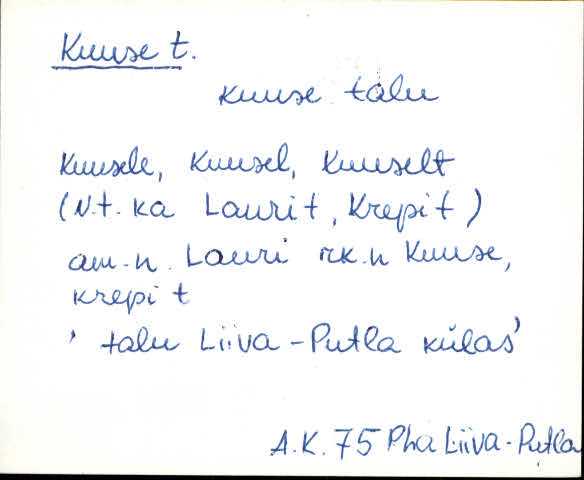 Kuuse t.
kuuse talu
kuusele, kuusel, kuuselt
(v.t. ka Lauri t, Krepi t)
am.n. Lauri rk.n Kuuse,
krepi t
' talu Liiva-Putla külas'
A.K. 75 Pha Liiva-Putla